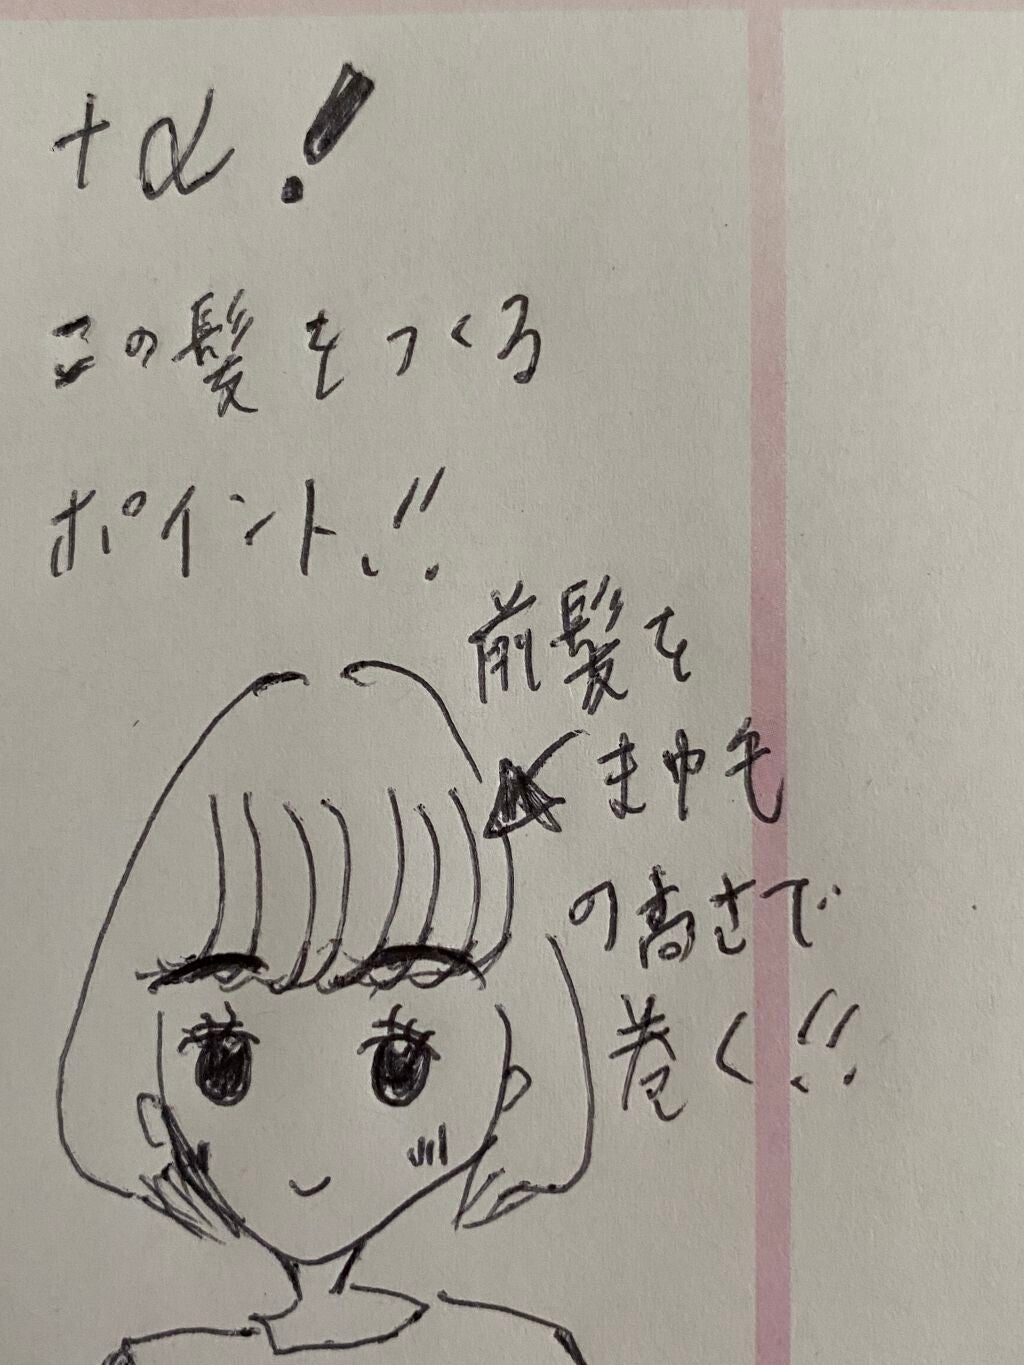 +α!
この髪をつくる
ポイント!!
前髪を
まゆ毛
の高さで
巻く!!